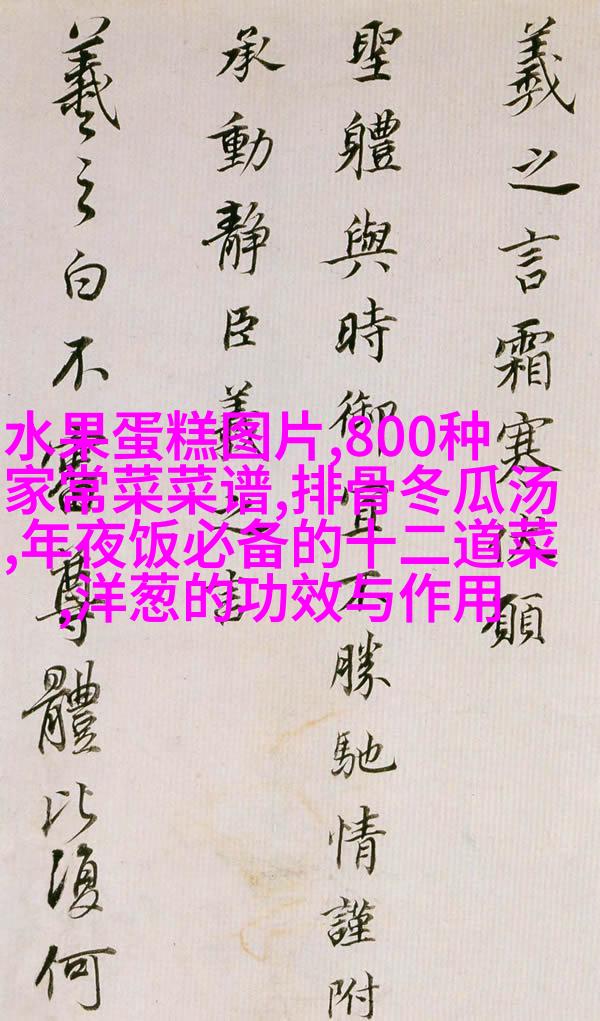 羲之言霜寒伏願
聖體與時御宜不勝馳情謹附
承動靜臣羲之言
羲之白不審尊體比復何
水果蛋糕图片,800种
家常菜菜谱,排骨冬瓜汤
,年夜饭必备的十二道菜
,洋葱的功效与作用